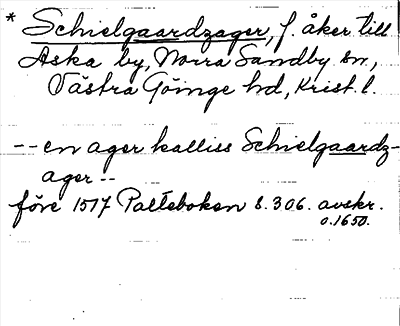 * Schielgaardzager, f. åker till
Aska by, Norra Sandby sn.,
Västra Göinge hd, Krist. l.
-- en ager kalliss Schielgaardz-
ager --
före 1517 Palteboken s. 306. avskr.
o. 1650.